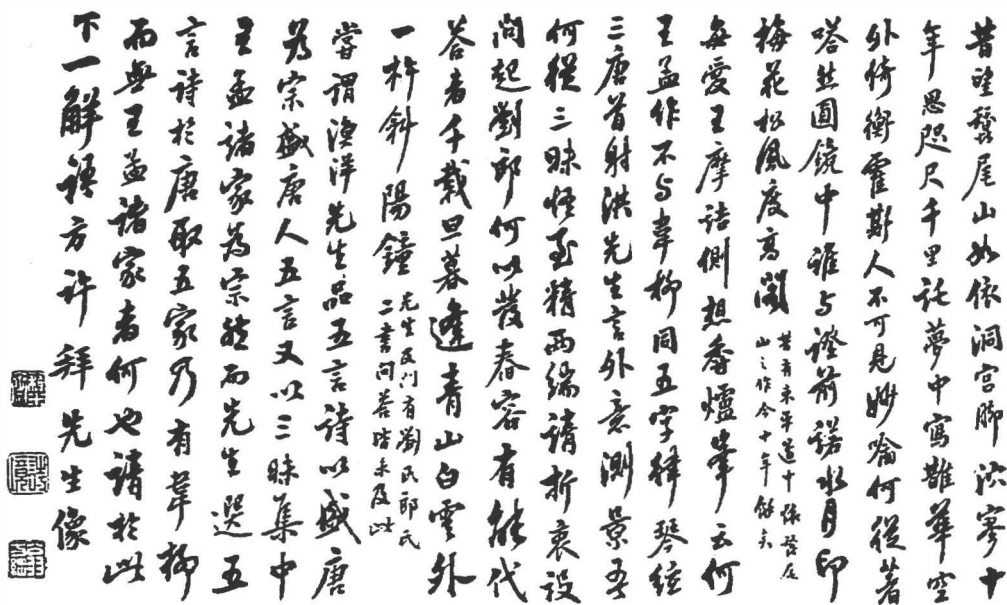 昔望鬌尾山如依洞宮脚泬寥十
年思咫尺千里託夢中寫鵲華空
外倚衡霍斯人不可見妙喻何從著
嗒然圓鏡中誰与證前諾水月印
梅花松風度高閣
昔有東平道中懷尾
山之作今十年餘矣
每愛王摩詰側想香爐峯云何
王孟作不与韋柳同五字律琴絃
三唐首射洪先生言外意測景吾
何從三昧悟至精兩編請折衷設
問起劉郎何以發春容有能代
答者千載旦暮逢青山白雲外
一杵斜陽鐘
先生及門有劉氏郎氏
二書問答皆未及此
嘗謂漁洋先生品五言詩以盛唐
為宗盛唐人五言又以三昧集中
王孟諸家為宗然而先生選五
言詩於唐取五家乃有韋柳
而無王孟諸家者何也請於此
下一解語方許拜先生像